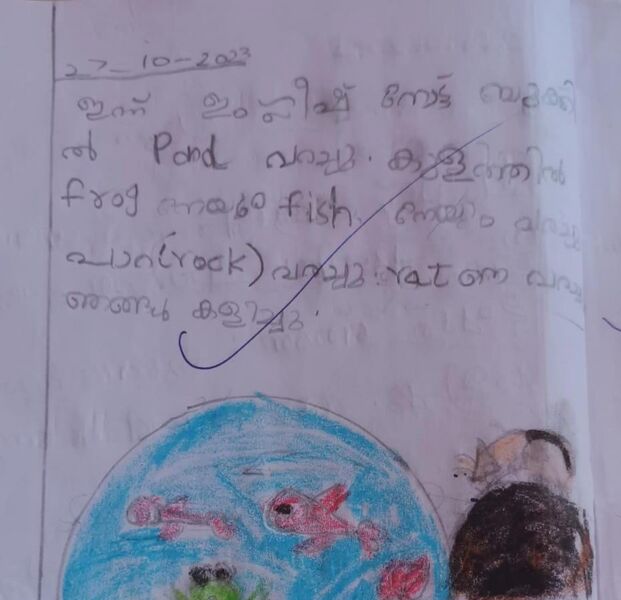 27-10-2023
ഇന്ന് ഇംഗ്ലീഷ് നോട്ട് ബുക്കി
ൽ Pond വരച്ചു. കുളത്തിൽ
frog നെയും fish നേയും വരച്ചു
പാറ(rock) വരച്ചു. rat നെ വരച്ചു
ഞങ്ങൾ കളിച്ചു.